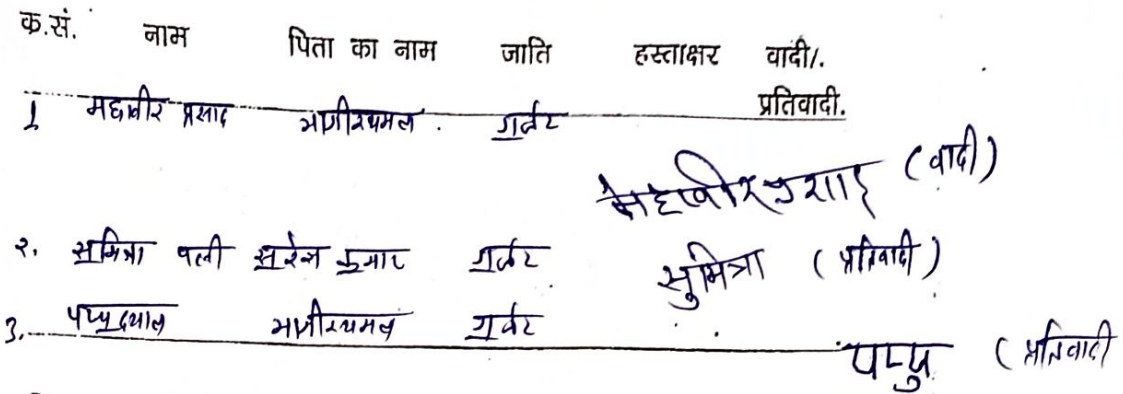 क्र.सं. नाम पिता का नाम जाति हस्ताक्षर वादी/.
प्रतिवादी.
1 महावीर प्रसाद भागीरथमल . गुर्जर
महावीर प्रसाद (वादी)
२. सुमित्रा पत्नी सुरेश कुमार गुर्जर सुमित्रा (प्रतिवादी)
3. पप्पूदयाल भागीरथमल गुर्जर
पप्पु (प्रतिवादी